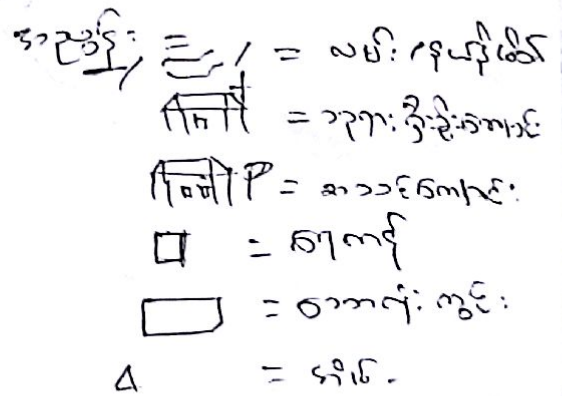 အညွှန်း
= လမ်း / နယ်နိမိတ်
= ဘုရား ရှိခိုးကျောင်း
P = စာသင်ကျောင်း
= ရေကန်
= ဘောလုံး ကွင်း
= အိမ်